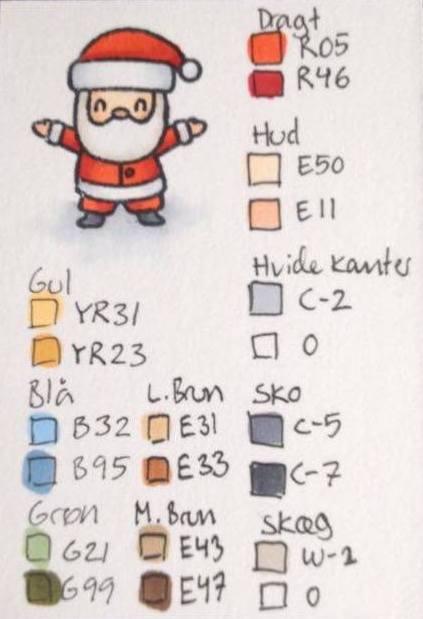 Dragt
R05
R46
Hud
E50
E11
Hvide Kanter
C-2
0
Gul
YR31
YR23
Blå
B32
B95
L.Brun
E31
E33
Sko
C-5
C-7
Grøn
G21
G99
M.Brun
E43
E47
Skæg
W-1
0